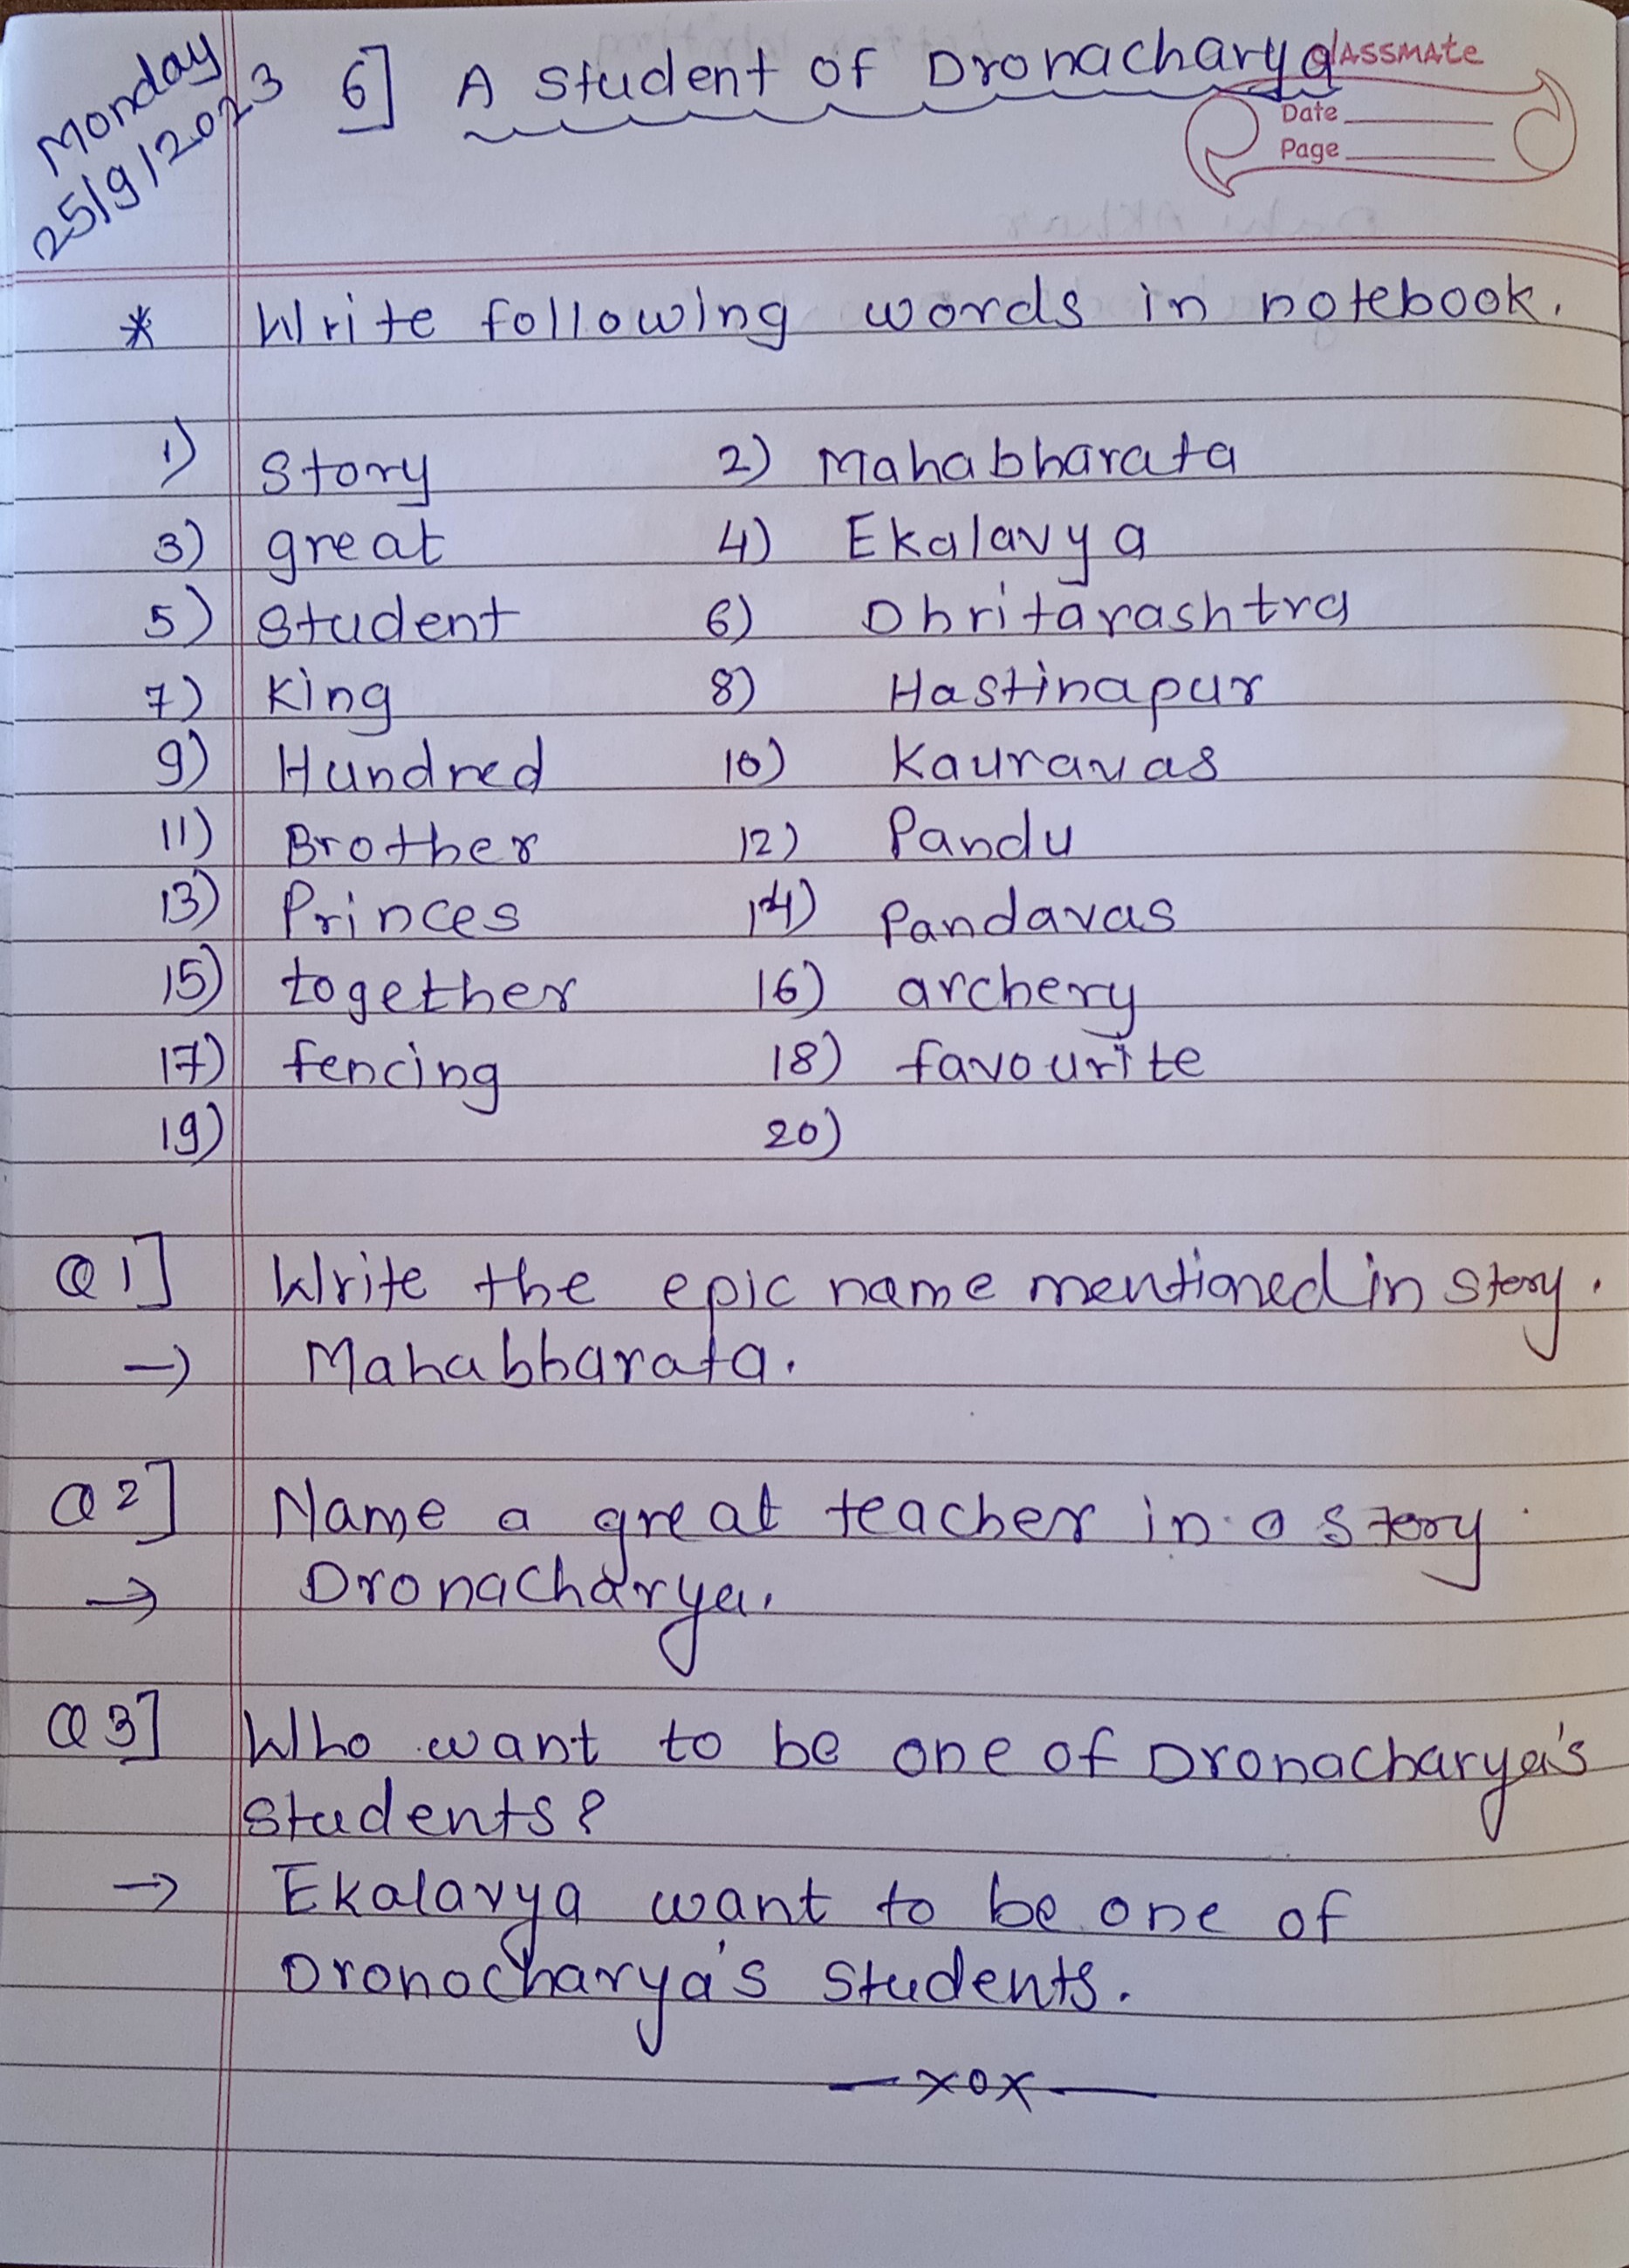 Monday
25/9/2023
6] A student of Dronacharya
CLASSMATE
Date
Page
* Write following words in notebook.
1) Story 2) Mahabharata
3) great 4) Ekalavya
5) Student 6) Dhritarashtra
7) King 8) Hastinapur
9) Hundred 10) Kauravas
11) Brother 12) Pandu
13) Princes 14) Pandavas
15) together 16) archery
17) fencing 18) favourite
19) 20)
Q1] Write the epic name mentioned in story.
→ Mahabharata.
Q2] Name a great teacher in a story.
→ Dronacharya.
Q3] Who want to be one of Dronacharya's
students?
→ Ekalavya want to be one of
Dronocharya's students.
— xox —